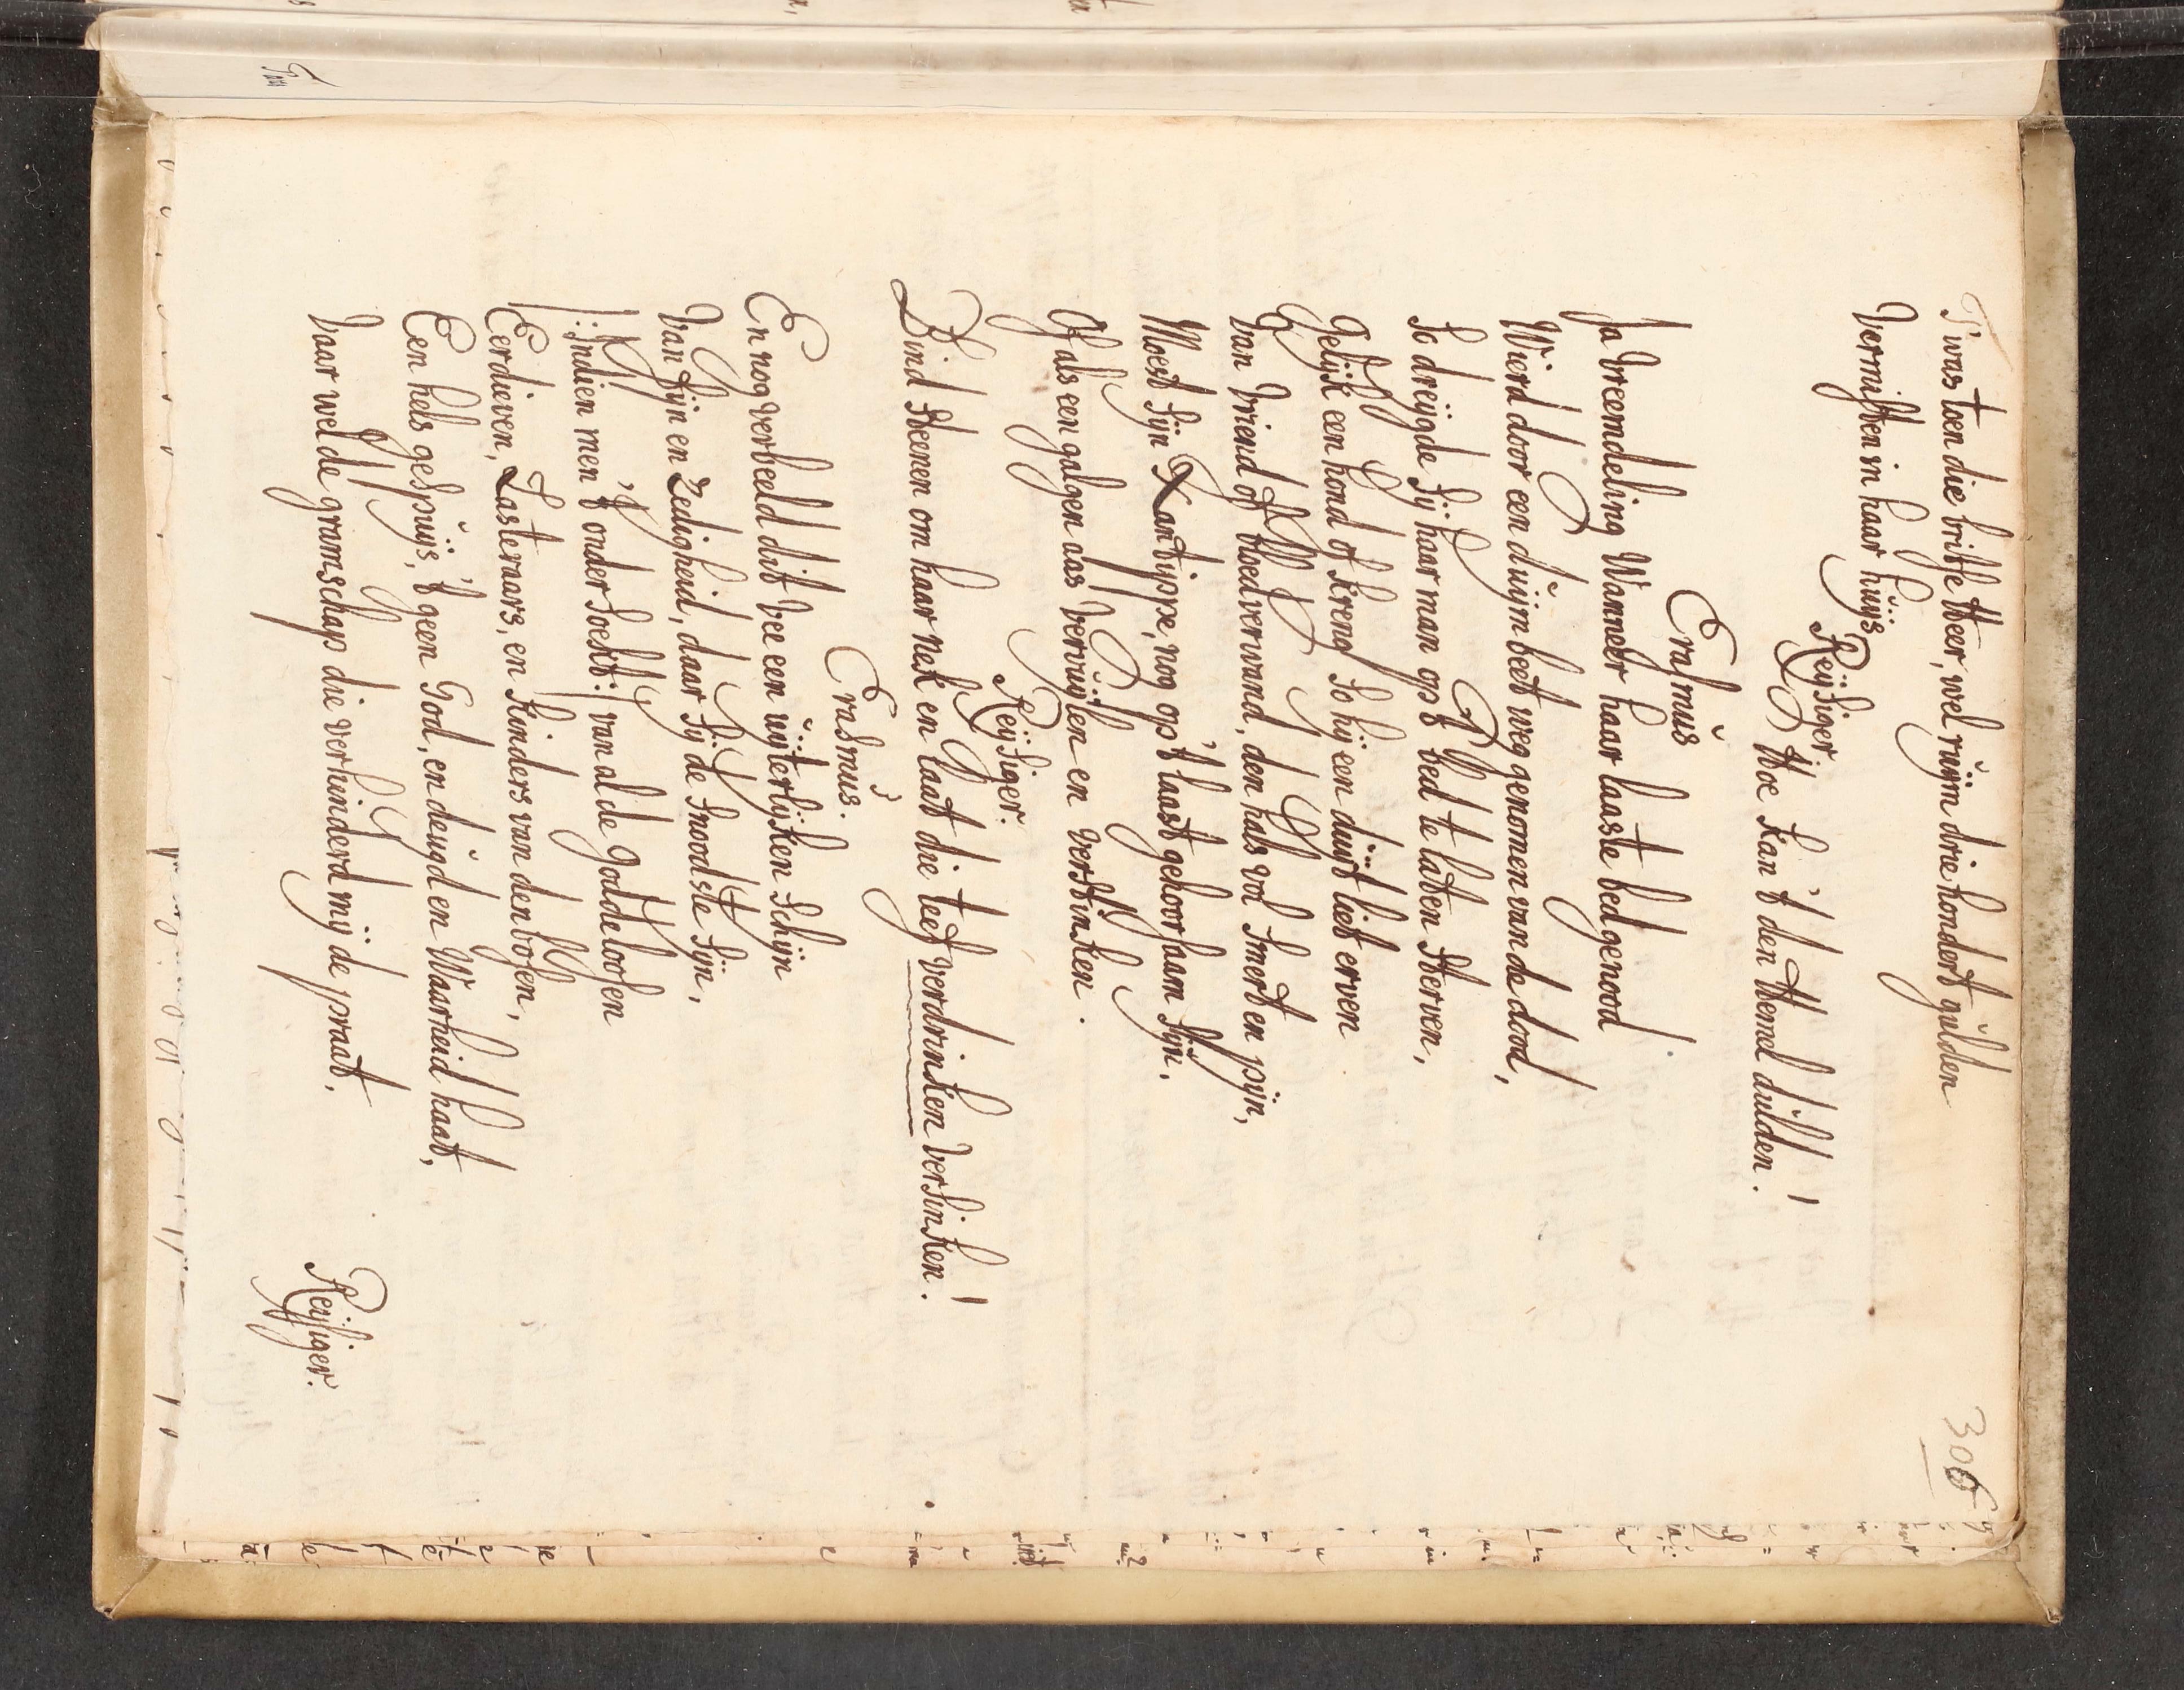 306
T'was toen die britse Heer, wel ruijm driehondert gulden
Vermisten in haar huijs
Reijsiger
Hoe kan 't den Hemel dulden!
Erasmus
Ja Vreemdeling Wanneer haar laaste bedgenood
Wierd door een duijm beet weg genomen van de dood,
So dreijgde Sij haar man op 't bed te laten Sterven,
Gelijk een hond of kreng So hij een duijt liet erven
Van vriend of bloed verwand, den hals vol Smert en pijn,
Moest Sijn Xantippe, nog op 't laast gehoorsaam Sijn,
Of als een galgen aas vervuijlen en verstinken.
Reijsiger.
Bind Steenen om haar nek en laat die teef verdrinken versinken!
Erasmus.
En nog verbeeld dit vee een uijterlijken Schijn
Van fijn en Zedigheid, daar Sij de Snoodste Sijn,
/:Indien men 't onder soekt:/ van al de goddeloosen
Eerdieven, Lasteraars, en Kinders van den bosen,
Een hels gespuijs, 't geen God, en deugd en Waarheid haat,
Vaar wel de gramschap die verhinderd mij de praat,
Reijsiger.